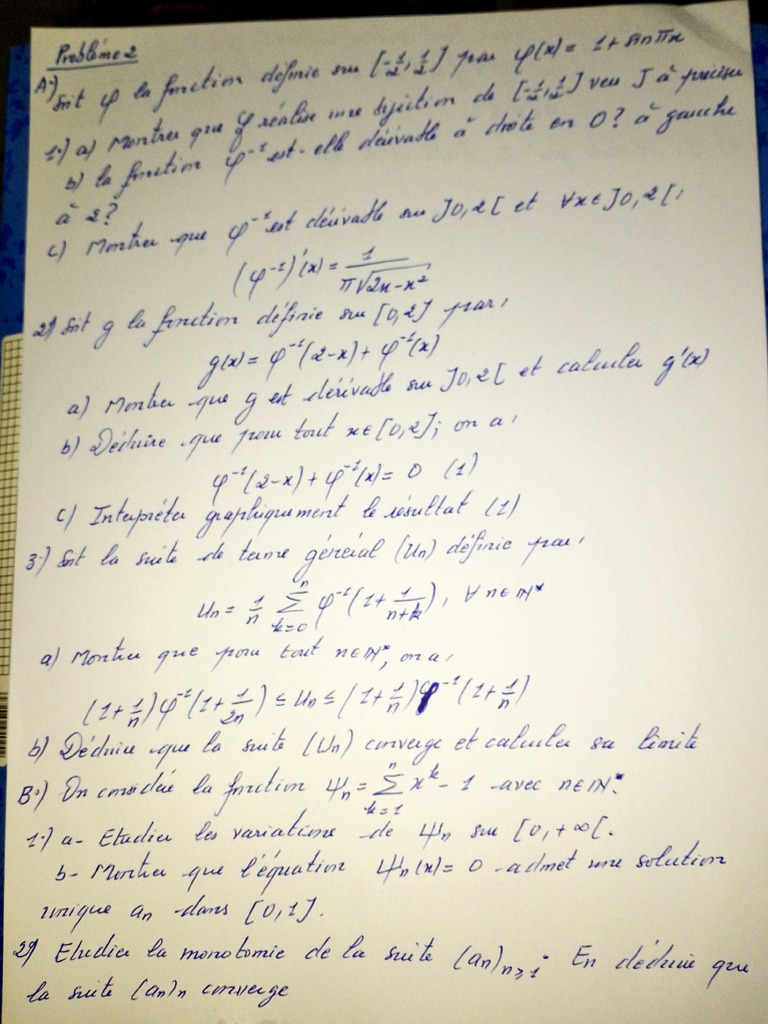 Problème 2
A°) Soit φ la fonction définie sur [-1/2, 1/2] par φ(x) = 1 + sin πx
1°) a) Montrer que φ réalise une bijection de [-1/2, 1/2] vers J à préciser
b) la fonction φ⁻¹ est-elle dérivable à droite en 0? à gauche
à 2?
c) Montrer que φ⁻¹ est dérivable sur ]0,2[ et ∀x ∈ ]0,2[,
(φ⁻¹)'(x) = 1/(π√(2x-x²))
2°) Soit g la fonction définie sur [0,2] par,
g(x) = φ⁻¹(2-x) + φ⁻¹(x)
a) Montrer que g est dérivable sur ]0,2[ et calculer g'(x)
b) Déduire que pour tout x ∈ [0,2]; on a,
φ⁻¹(2-x) + φ⁻¹(x) = 0 (1)
c) Interpréter graphiquement le résultat (1)
3°) Soit la suite de terme général (Un) définie par,
Un = 1/n Σ_{k=0}^{n} φ⁻¹(1 + 1/(n+k)), ∀ n ∈ IN*
a) Montrer que pour tout n ∈ IN*, on a,
(1+1/n) φ⁻¹(1+1/2n) ≤ Un ≤ (1+1/n) φ⁻¹(1+1/n)
b) Déduire que la suite (Un) converge et calculer sa limite
B°) On considère la fonction Ψn = Σ_{k=1}^{n} x^k - 1 avec n ∈ IN*.
1°) a- Etudier les variations de Ψn sur [0, +∞[.
b- Montrer que l'équation Ψn(x) = 0 admet une solution
unique an dans [0,1].
2°) Etudier la monotomie de la suite (an)n≥1. En déduire que
la suite (an)n converge